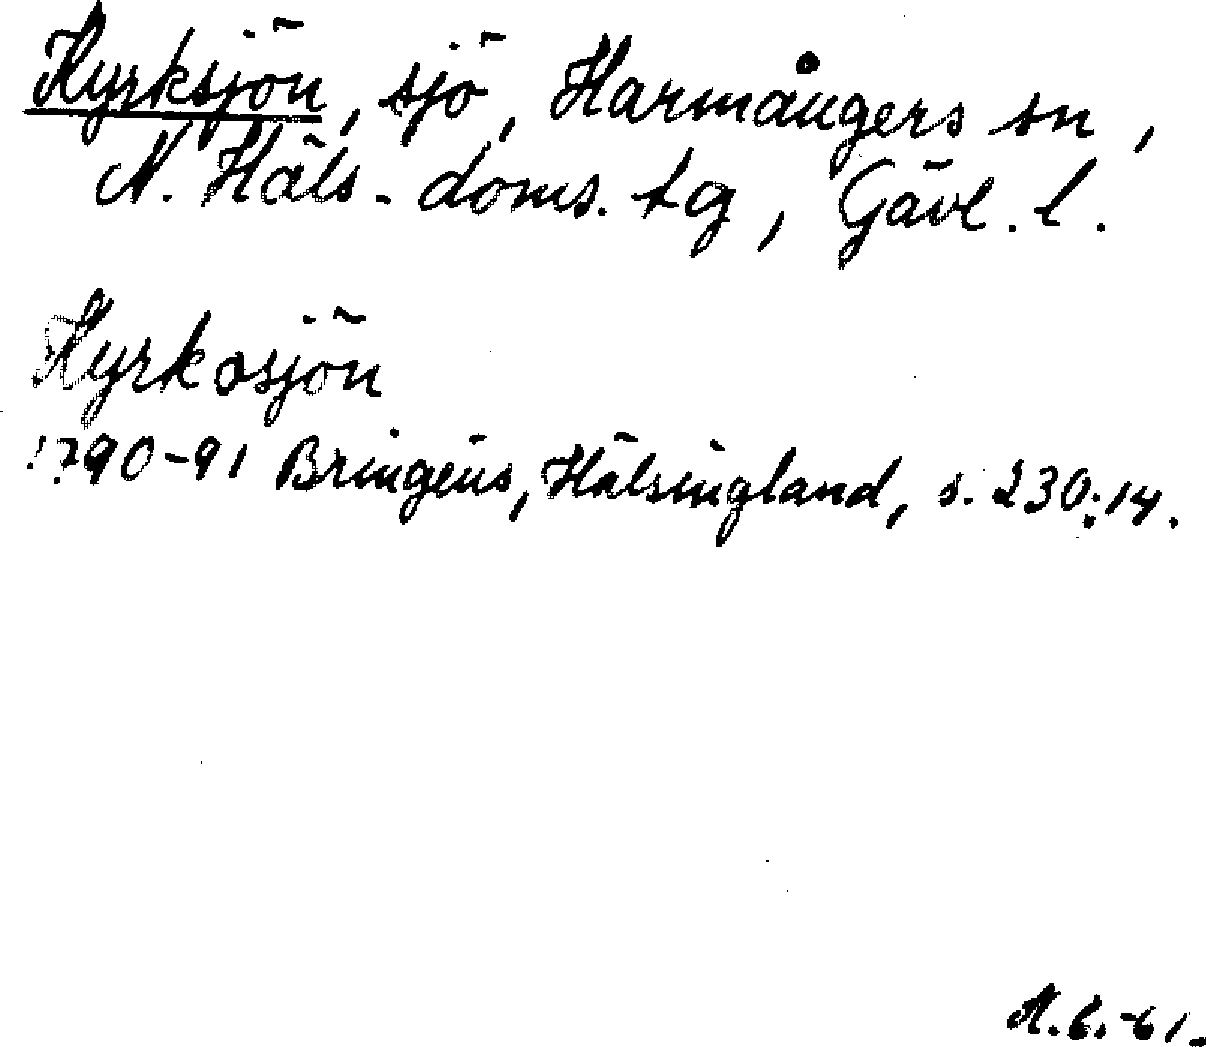 Kyrksjön, sjö, Harmångers sn,
N. Häls. doms. tg, Gävl. l.
Kyrkosjön
1790-91 Bringéus, Hälsingland, s. 230:14.
-61.